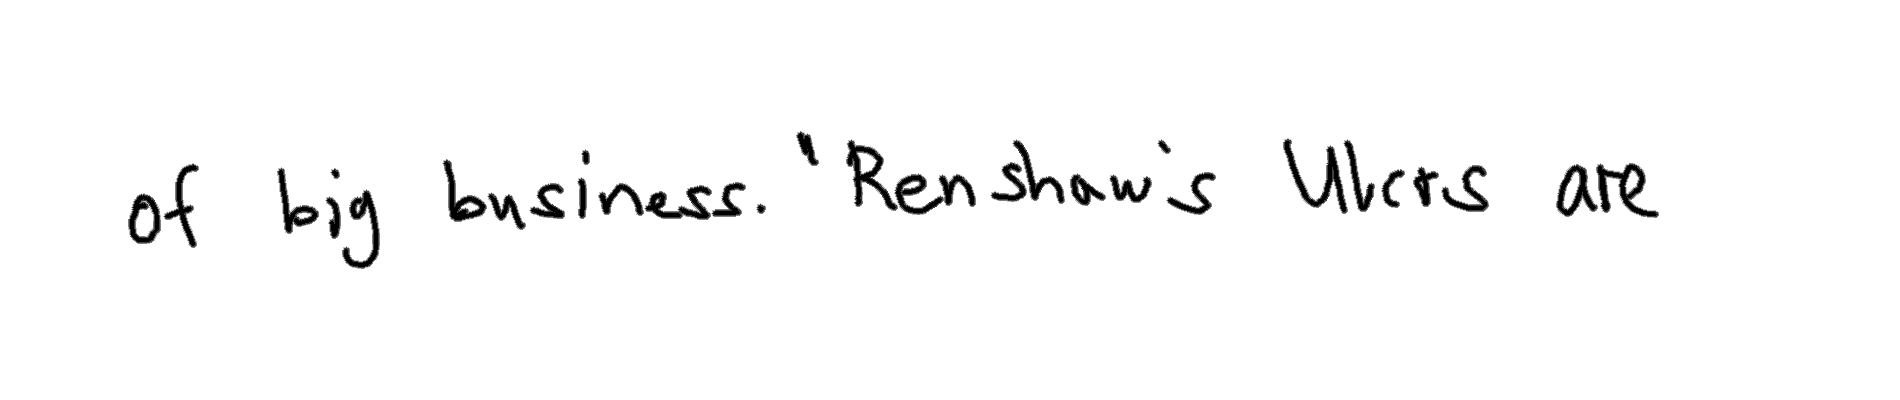 of big business. "Renshaw's Ulcrs are